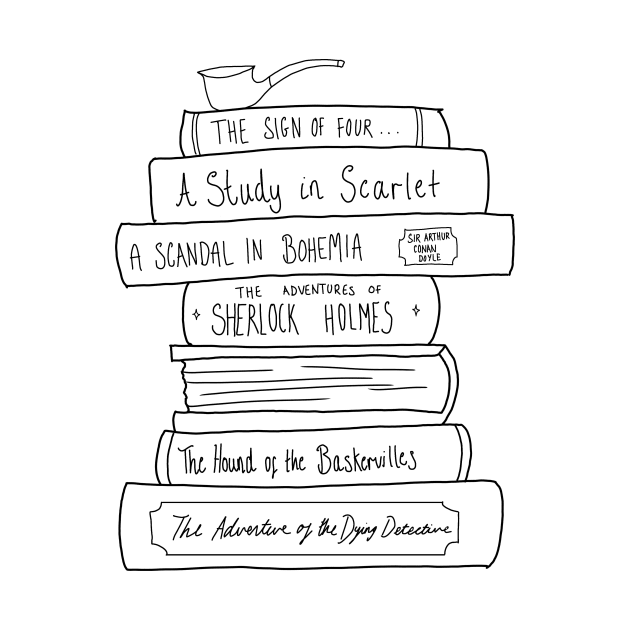 THE SIGN OF FOUR...
A Study in Scarlet
A SCANDAL IN BOHEMIA
SIR ARTHUR
CONAN
DOYLE
THE ADVENTURES OF
SHERLOCK HOLMES
The Hound of the Baskervilles
The Adventure of the Dying Detective